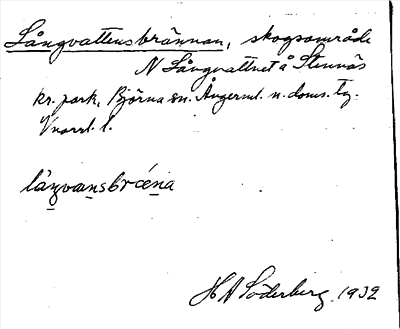 Långvattensbrännan, skogsområde
N Långvattnet å Stennäs
kr. park, Björna sn. Ångerml. n. doms. tg.
Vnorrl. l.
långvansbrǽna
H A Söderberg 1932